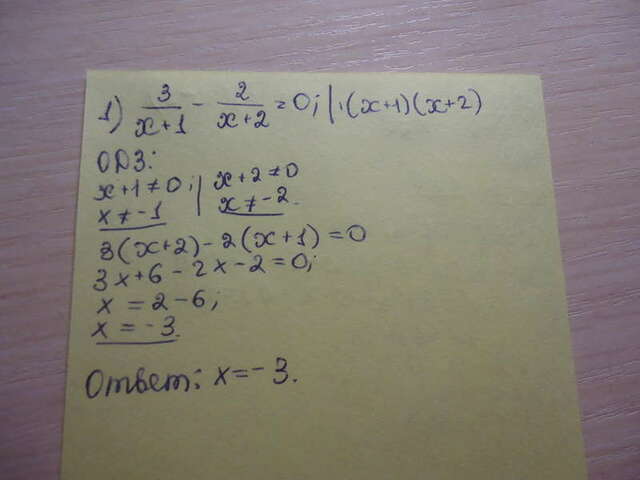 1) 3/(x+1) - 2/(x+2) = 0; | ·(x+1)(x+2)
ОДЗ:
x+1≠0; | x+2≠0
x≠-1 | x≠-2.
3(x+2)-2(x+1)=0
3x+6-2x-2=0;
x = 2-6;
x = -3.
Ответ: x=-3.